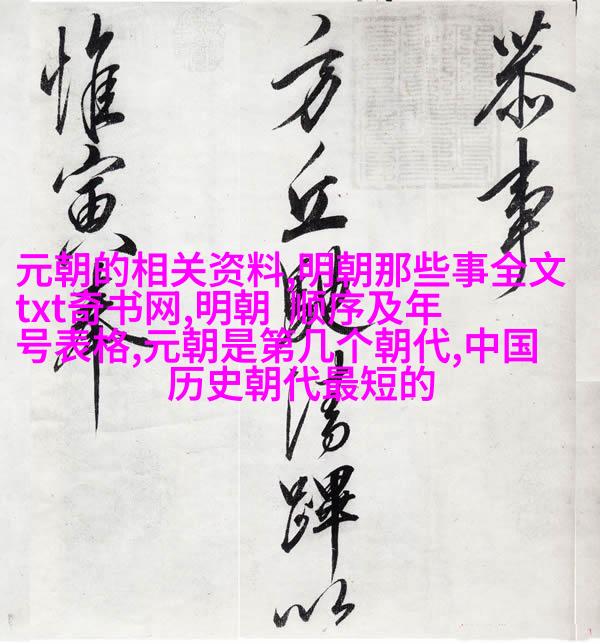 恭事
方丘清蹕以
惟寅奉
元朝的相关资料,明朝那些事全文
txt奇书网,明朝 顺序及年
号表格,元朝是第几个朝代,中国
历史朝代最短的